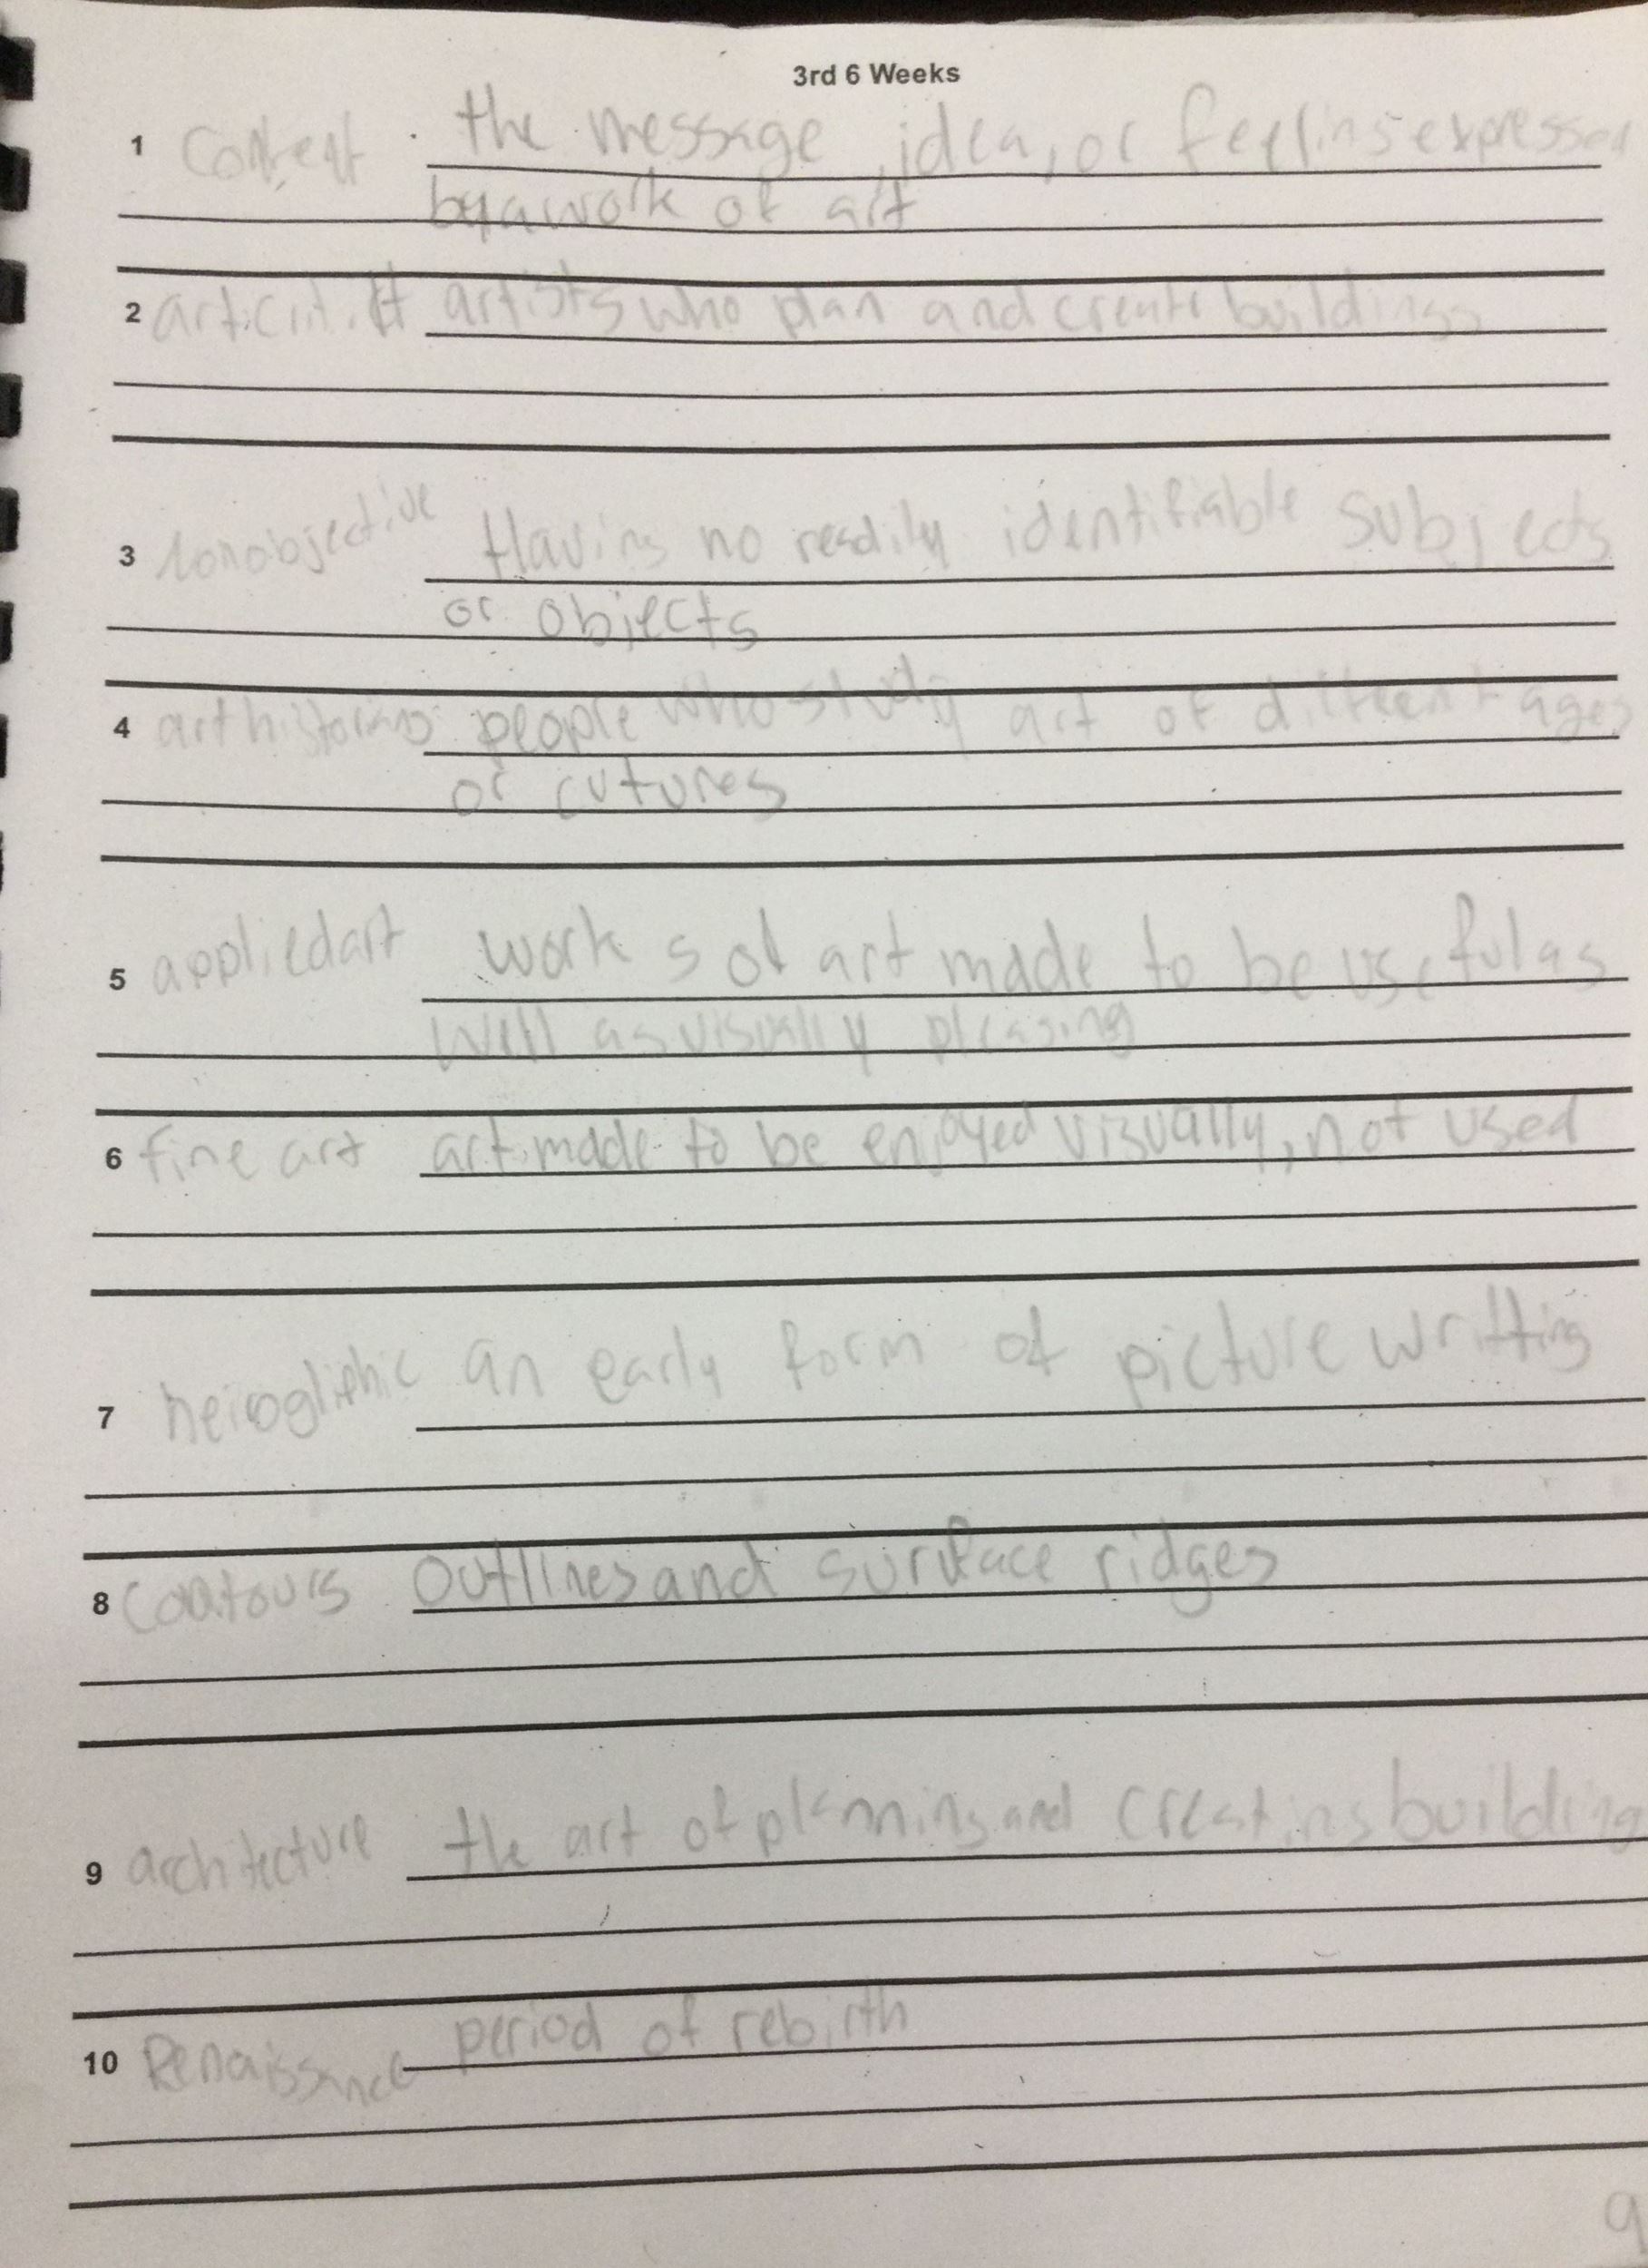 3rd 6 Weeks
1 Content the message, idea, or feelins expressed
by a work of art
2 artists who plan and create buildings
3 nonobjective Having no readily identifiable subjects
or objects
4 art historians people who study art of different ages
or cutures
5 applied art works of art made to be useful as
well as visually pleasing
6 fine art art made to be enjoyed visually, not used
7 heirogliphic an early form of picture writting
8 contours outlines and surface ridges
9 architecture the art of planning and creatins building
10 Renaissance period of rebirth
9